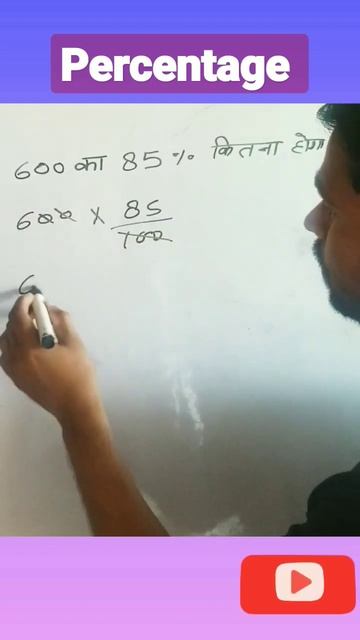 Percentage
600 का 85% कितना होगा
600 × 85/100
6